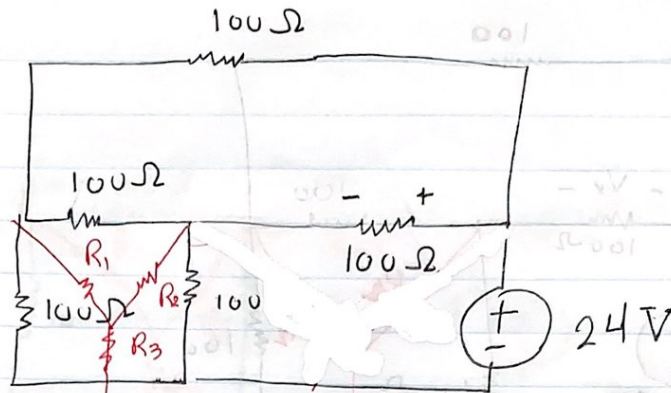 100 Ω
100 Ω
- +
100 Ω
R1
R2
100 Ω
100
R3
+
-
24 V